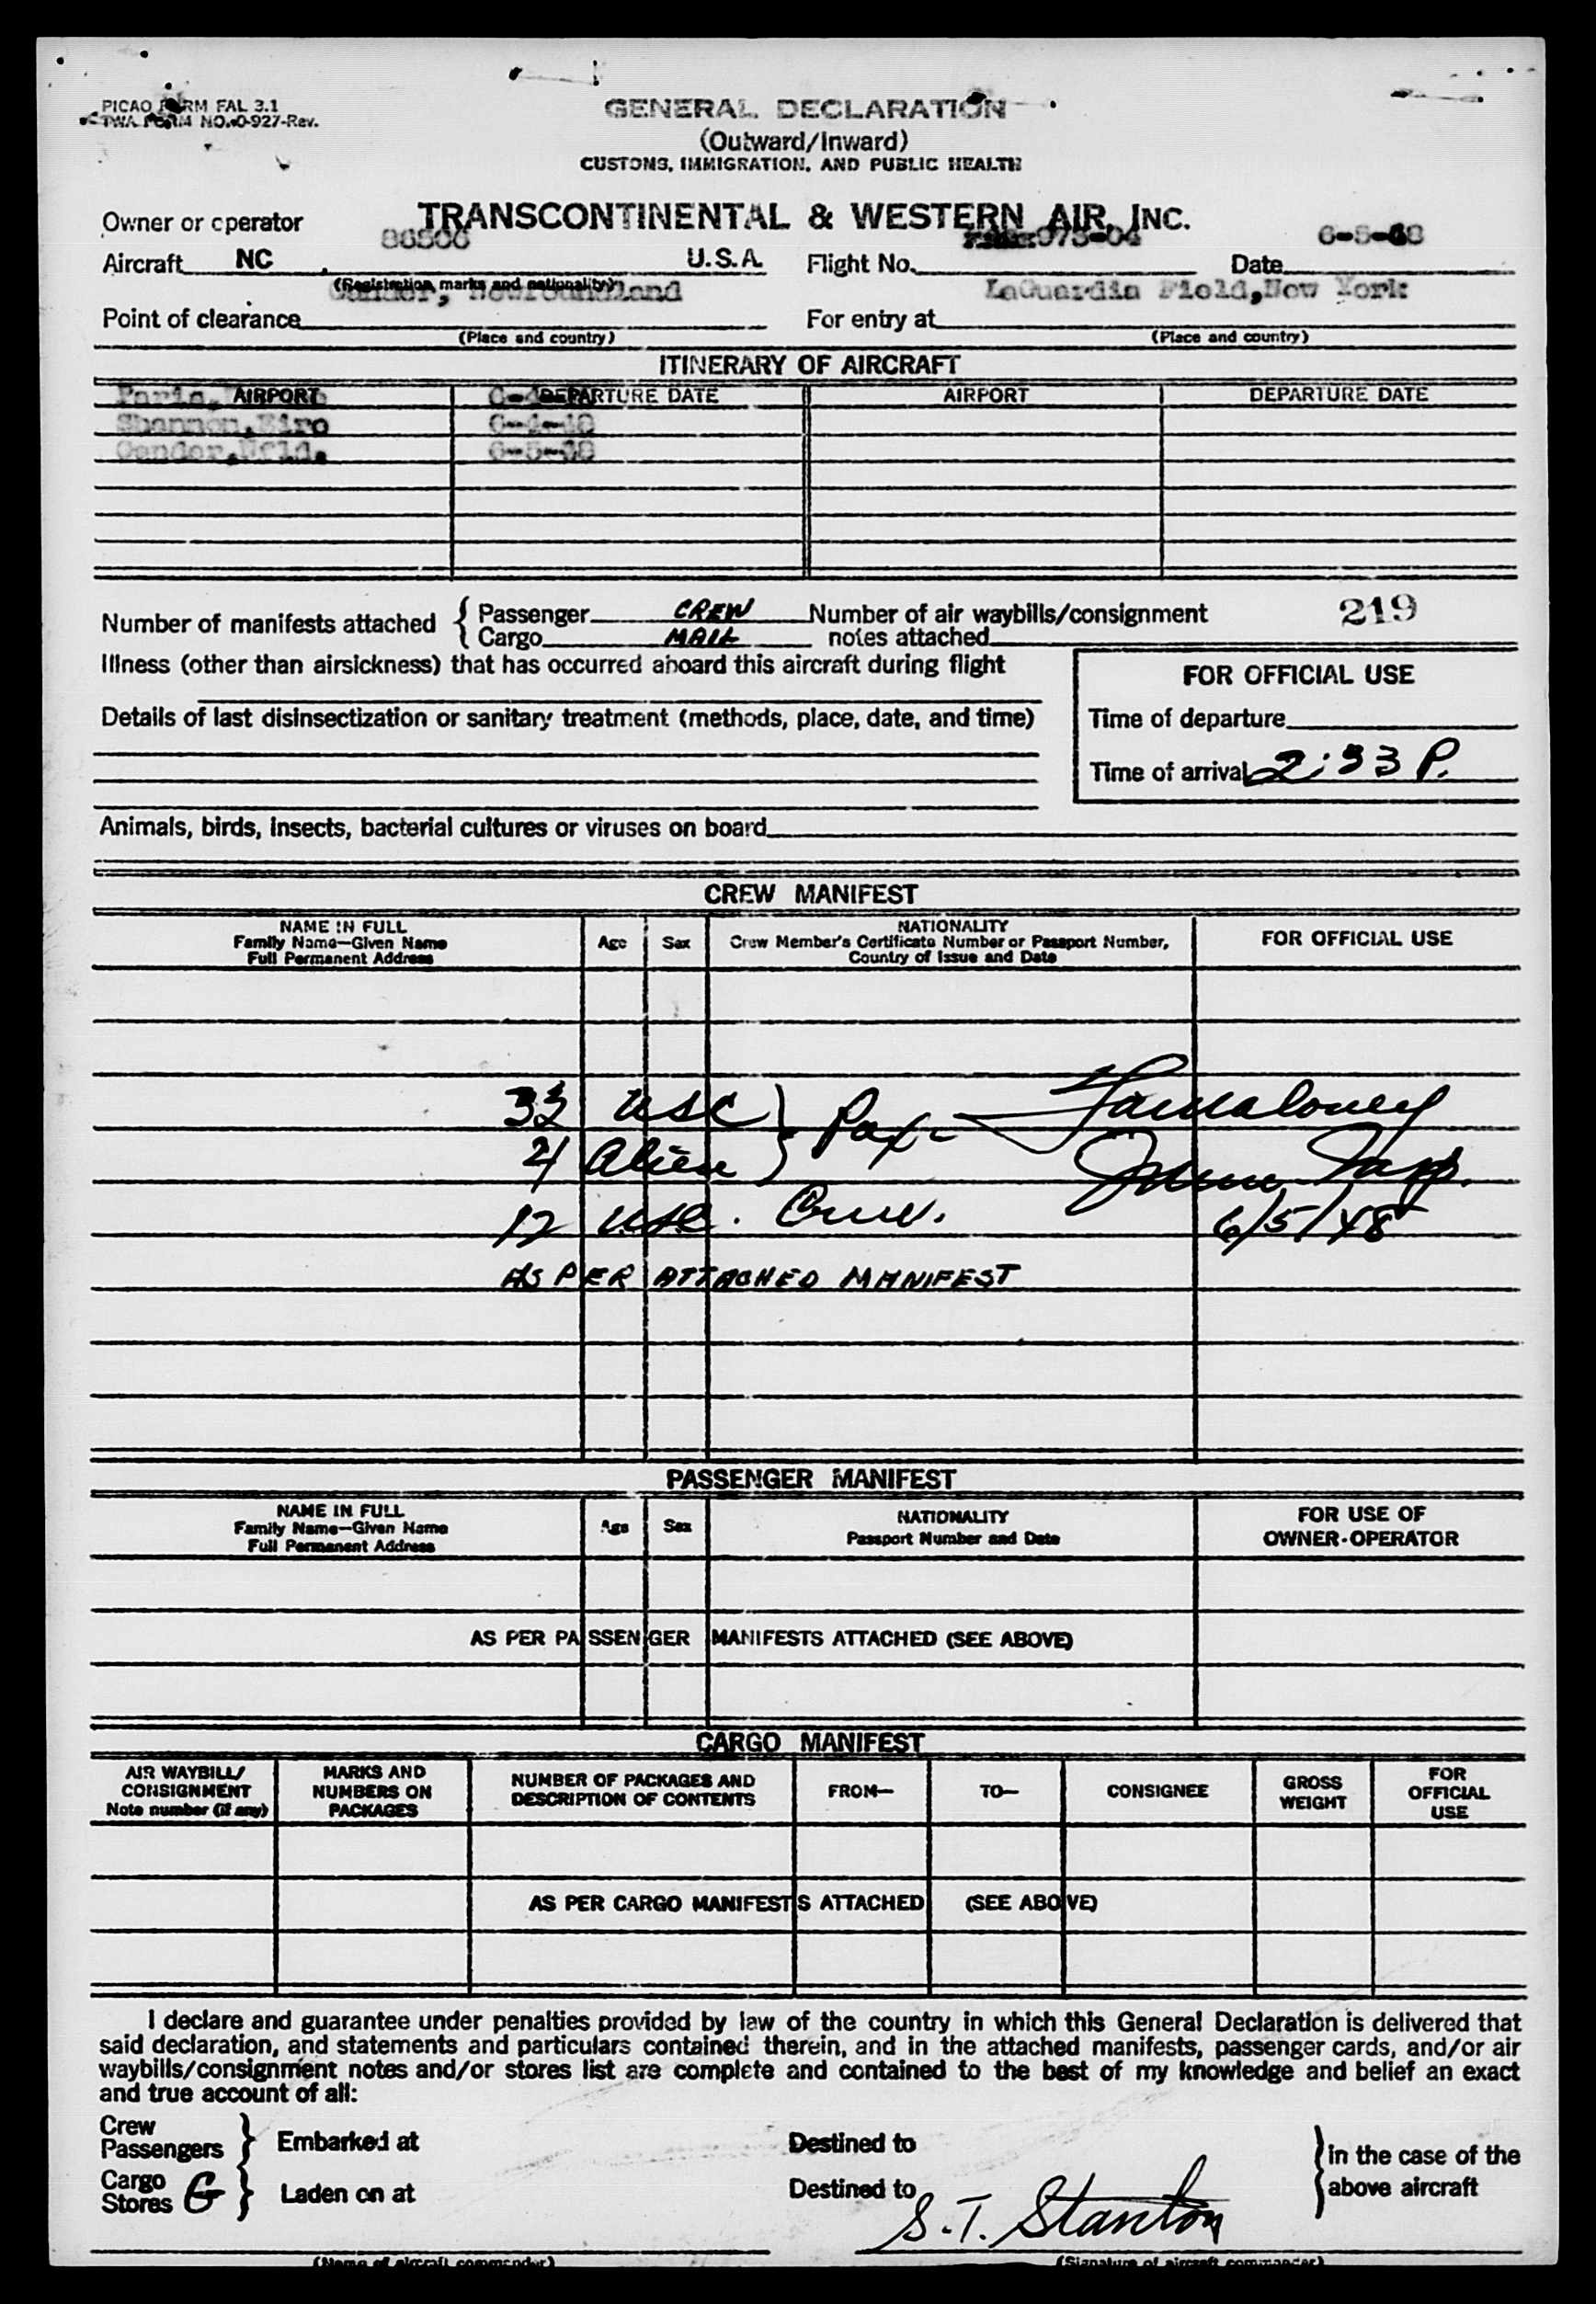 PICAO FORM FAL 3.1
TWA FORM NO. O-927-Rev.
GENERAL DECLARATION
(Outward/Inward)
CUSTOMS, IMMIGRATION, AND PUBLIC HEALTH
Owner or operator TRANSCONTINENTAL & WESTERN AIR, INC.
Aircraft NC U.S.A. Flight No. 973-04 Date
(Registration marks and nationality)
Gander, Newfoundland LaGuardia Field, New York
Point of clearance For entry at
(Place and country) (Place and country)
ITINERARY OF AIRCRAFT
AIRPORT DEPARTURE DATE AIRPORT DEPARTURE DATE
Paris,
Shannon, Eire 6-4-48
Gander, Nfld.
Number of manifests attached { Passenger CREW Number of air waybills/consignment 219
Cargo MAIL notes attached
Illness (other than airsickness) that has occurred aboard this aircraft during flight
FOR OFFICIAL USE
Details of last disinsectization or sanitary treatment (methods, place, date, and time)
Time of departure
Time of arrival 2:33 P.
Animals, birds, insects, bacterial cultures or viruses on board
CREW MANIFEST
NAME IN FULL
Family Name—Given Name
Full Permanent Address
Age Sex
NATIONALITY
Crew Member's Certificate Number or Passport Number,
Country of Issue and Date
FOR OFFICIAL USE
33 USC } Pax -
4 Alien
12 USC. Crew. 6/5/48
AS PER ATTACHED MANIFEST
PASSENGER MANIFEST
NAME IN FULL
Family Name—Given Name
Full Permanent Address
Age Sex
NATIONALITY
Passport Number and Date
FOR USE OF
OWNER-OPERATOR
AS PER PASSENGER MANIFESTS ATTACHED (SEE ABOVE)
CARGO MANIFEST
AIR WAYBILL/
CONSIGNMENT
Note number (if any)
MARKS AND
NUMBERS ON
PACKAGES
NUMBER OF PACKAGES AND
DESCRIPTION OF CONTENTS
FROM— TO— CONSIGNEE
GROSS
WEIGHT
FOR
OFFICIAL
USE
AS PER CARGO MANIFESTS ATTACHED (SEE ABOVE)
I declare and guarantee under penalties provided by law of the country in which this General Declaration is delivered that
said declaration, and statements and particulars contained therein, and in the attached manifests, passenger cards, and/or air
waybills/consignment notes and/or stores list are complete and contained to the best of my knowledge and belief an exact
and true account of all:
Crew
Passengers } Embarked at Destined to
Cargo
Stores G } Laden on at Destined to
} in the case of the
above aircraft
S. T. Stanton
(Name of aircraft commander) (Signature of aircraft commander)